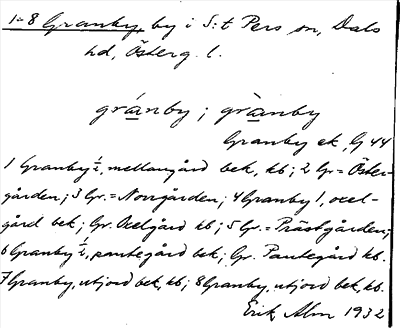 1-8 Granby, by i S:t Pers sn, Dals
hd, Österg. l.
gránby ; grànby
Granby ek, G 44
1 Granby ½, mellangård bek, kb; 2 Gr = Öster-
gården; 3 Gr. = Norrgården; 4 Granby 1, ocel-
gård bek; Gr. Ocelgård kb; 5 Gr. = Prästgården;
6 Granby ½, pantegård bek; Gr. Pantegård kb.
7 Granby, utjord bek, kb; 8 Granby, utjord bek, kb.
Erik Alm 1932